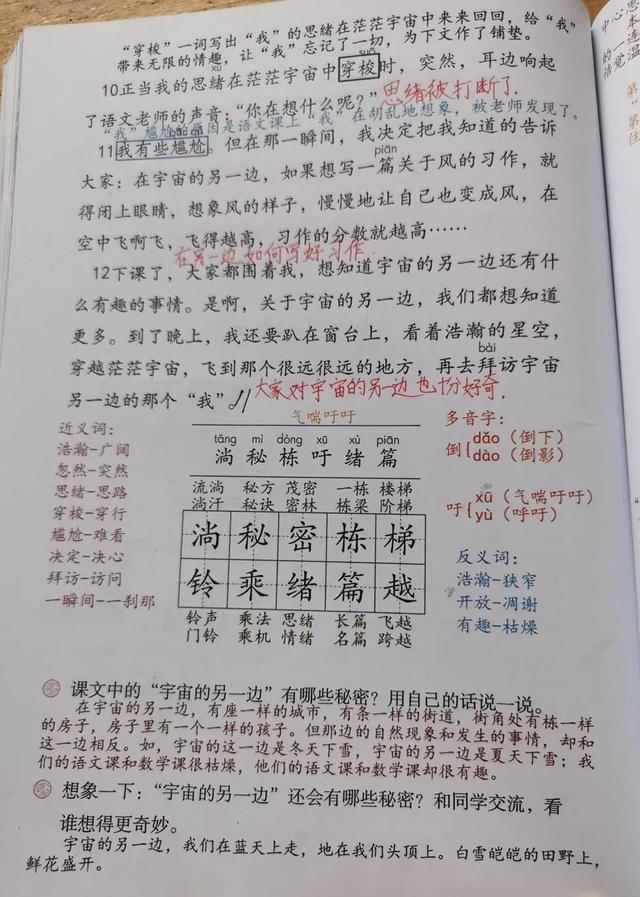 “穿梭”一词写出“我”的思绪在茫茫宇宙中来来回回，给“我”
带来无限的情趣，让“我”忘记了一切，为下文作了铺垫。
xù suō
10正当我的思绪在茫茫宇宙中穿梭时，突然，耳边响起
了语文老师的声音：“你在想什么呢？”思绪被打断了.
“我”尴尬的原因是语文课上“我”在胡乱地想象，被老师发现了。
11我有些尴尬。但在那一瞬间，我决定把我知道的告诉
piān
大家：在宇宙的另一边，如果想写一篇关于风的习作，就
得闭上眼睛，想象风的样子，慢慢地让自己也变成风，在
空中飞啊飞，飞得越高，习作的分数就越高……
在另一边如何写好习作
12下课了，大家都围着我，想知道宇宙的另一边还有什
么有趣的事情。是啊，关于宇宙的另一边，我们都想知道
更多。到了晚上，我还要趴在窗台上，看着浩瀚的星空，
bài
穿越茫茫宇宙，飞到那个很远很远的地方，再去拜访宇宙
另一边的那个“我”。大家对宇宙的另一边也十分好奇.
近义词：
浩瀚-广阔
忽然-突然
思绪-思路
穿梭-穿行
尴尬-难看
决定-决心
拜访-访问
一瞬间-一刹那
气喘吁吁
tǎng mì dòng xū xù piān
淌 秘 栋 吁 绪 篇
流淌 秘方 茂密 一栋 楼梯
淌汗 秘诀 密林 栋梁 阶梯
淌 秘 密 栋 梯
铃 乘 绪 篇 越
铃声 乘法 思绪 长篇 飞越
门铃 乘机 情绪 名篇 跨越
多音字：
倒{dǎo（倒下）
dào（倒影）
吁{xū（气喘吁吁）
yù（呼吁）
反义词：
浩瀚-狭窄
开放-凋谢
有趣-枯燥
课文中的“宇宙的另一边”有哪些秘密？用自己的话说一说。
在宇宙的另一边，有座一样的城市，有条一样的街道，街角处有栋一样
的房子，房子里有一个一样的孩子。但那边的自然现象和发生的事情，却和
这一边相反。如，宇宙的这一边是冬天下雪，宇宙的另一边是夏天下雪；我
们的语文课和数学课很枯燥，他们的语文课和数学课却很有趣。
想象一下：“宇宙的另一边”还会有哪些秘密？和同学交流，看
谁想得更奇妙。
宇宙的另一边，我们在蓝天上走，地在我们头顶上。白雪皑皑的田野上，
鲜花盛开。